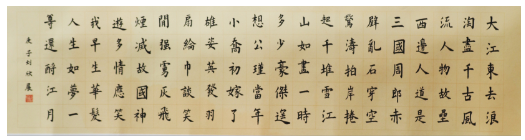 大江東去浪
淘盡千古風
流人物故壘
西邊人道是
三國周郎赤
壁亂石穿空
驚濤拍岸捲
起千堆雪江
山如畫一時
多少豪傑遙
想公瑾當年
小喬初嫁了
雄姿英發羽
扇綸巾談笑
間強虜灰飛
煙滅故國神
遊多情應笑
我早生華髮
人生如夢一
尊還酹江月
庚子